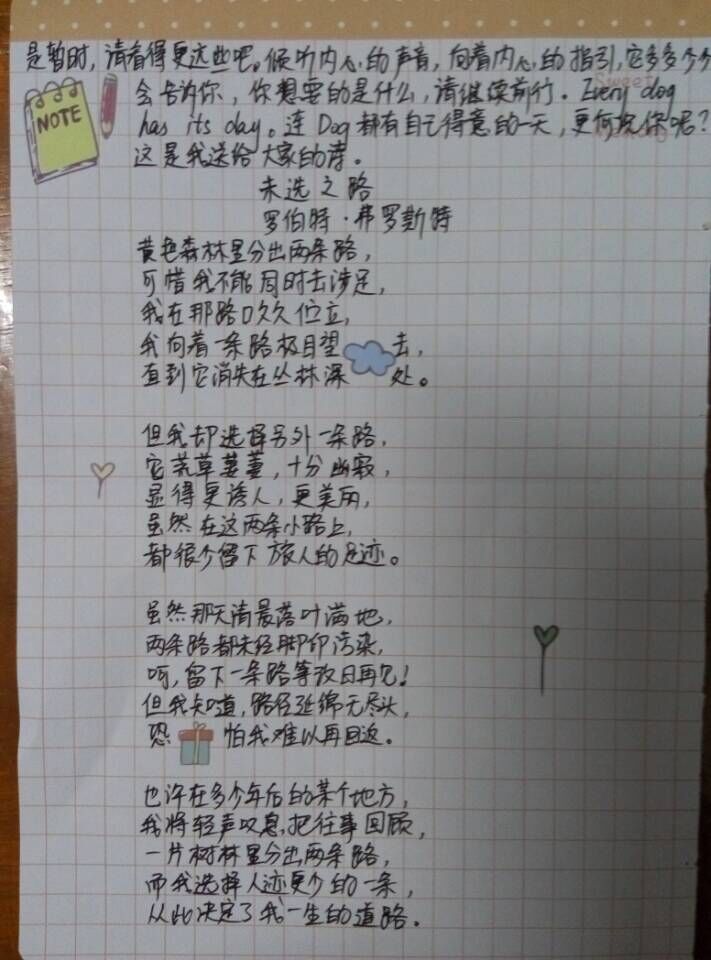 是暂时，请看得更远些吧。倾听内心的声音，向着内心的指引，它多多少少
会告诉你，你想要的是什么，请继续前行。Every dog
has its day。连Dog都有自己得意的一天，更何况你呢？
这是我送给大家的诗。
NOTE
Sweet
未选之路
罗伯特·弗罗斯特
黄色森林里分出两条路，
可惜我不能同时去涉足，
我在那路口久久伫立，
我向着一条路极目望去，
直到它消失在丛林深处。
但我却选择另外一条路，
它荒草萋萋，十分幽寂，
显得更诱人，更美丽，
虽然在这两条小路上，
都很少留下旅人的足迹。
虽然那天清晨落叶满地，
两条路都未经脚印污染，
呵，留下一条路等改日再见！
但我知道，路径延绵无尽头，
恐怕我难以再回返。
也许在多少年后的某个地方，
我将轻声叹息，把往事回顾，
一片树林里分出两条路，
而我选择人迹更少的一条，
从此决定了我一生的道路。